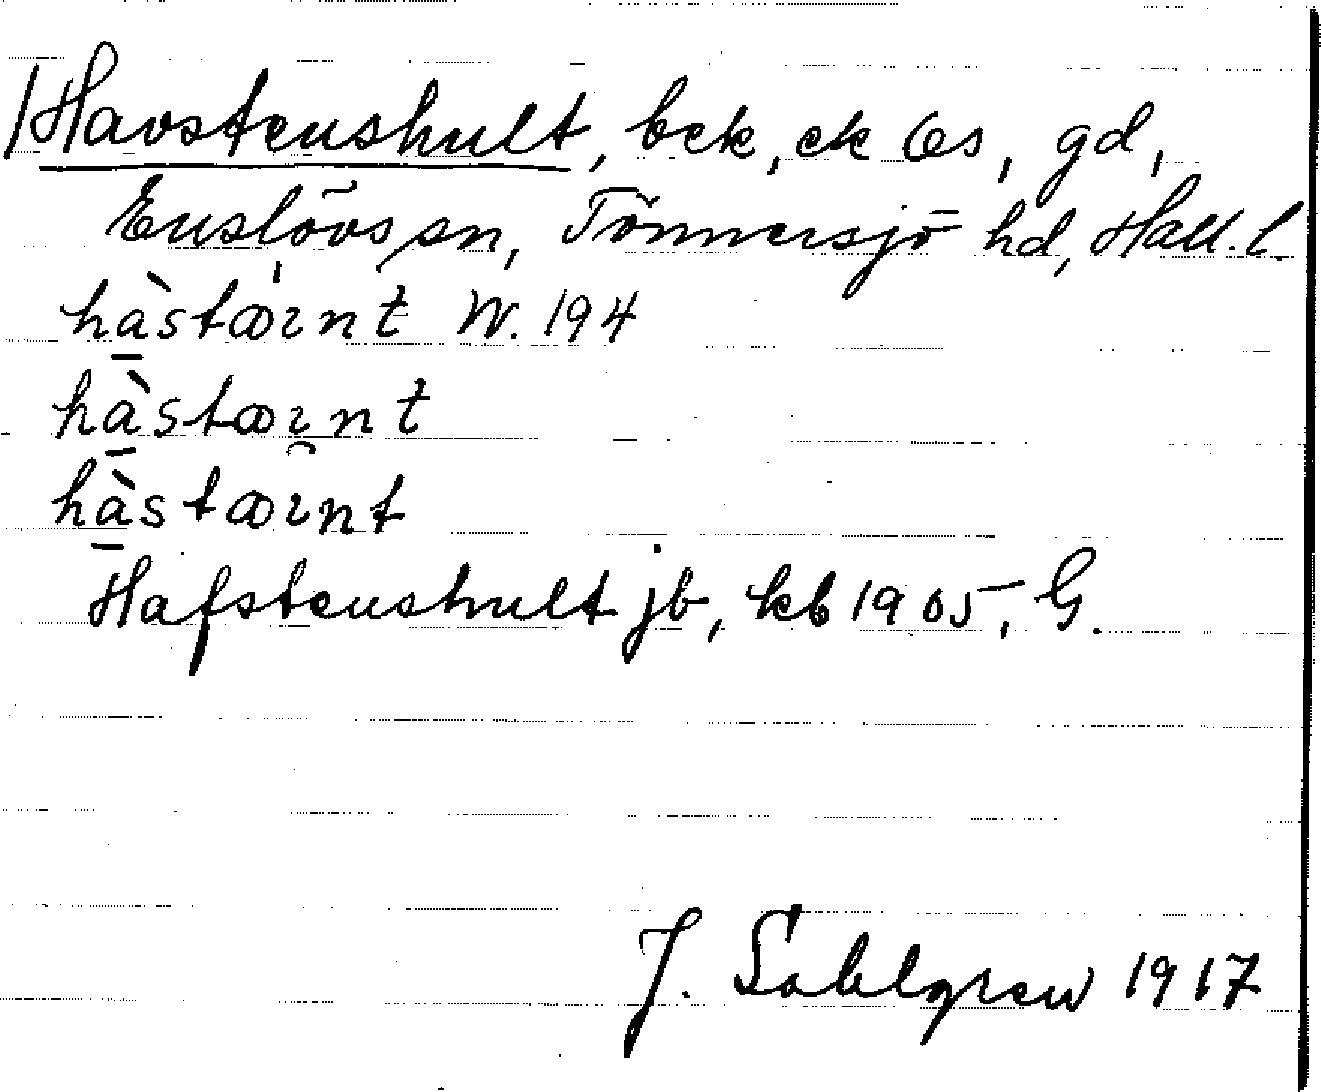 Havstenshult, bck, ck Os, gd,
Enslövs sn, Tönnersjö hd, Hall. l.
hàstæɩnt W. 194
hàstæɩnt
hàstæɩnt
Hafstenshult jb, kb 1905, G.
J. Sahlgren 1917